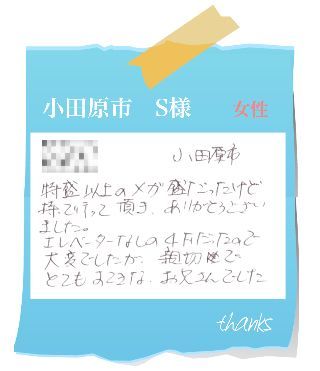 小田原市　S様　女性
小田原市
特盛以上のメガ盛だったけど
持で行って頂き、ありがとうござい
ました。
エレベーターなしの4Fだったので
大変でしたが、親切で
とてもすてきな、お兄さんでした
thanks